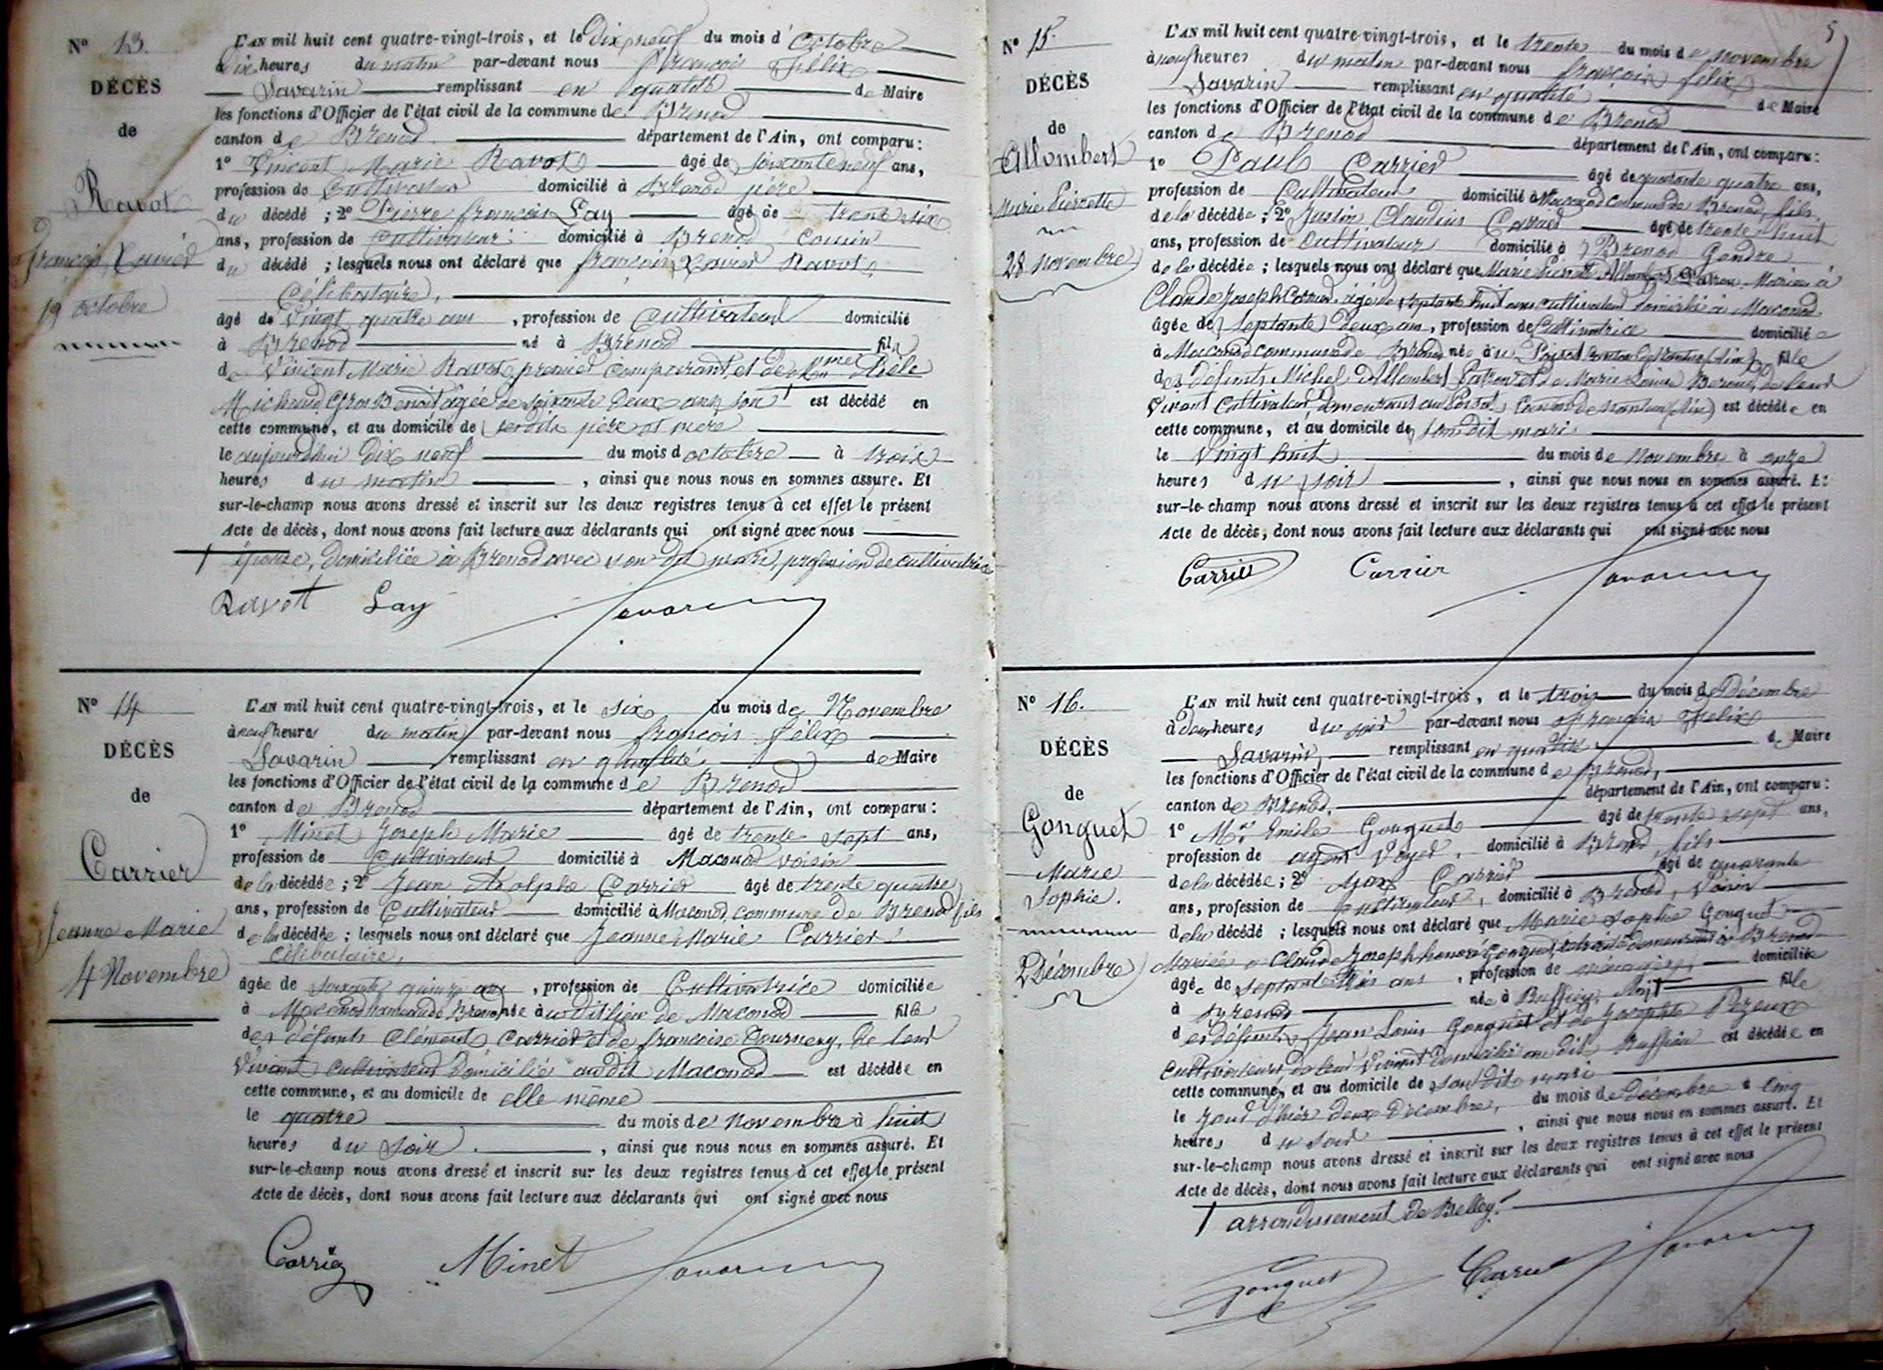 N° 13.
DÉCÈS
de
Ravot
François Xavier
19 octobre
L'AN mil huit cent quatre-vingt-trois, et le dix neuf du mois d'octobre
à dix heures du matin par-devant nous François Félix
Savarin remplissant en qualité de Maire
les fonctions d'Officier de l'état civil de la commune de Brenod
canton de Brenod département de l'Ain, ont comparu :
1° Vincent Marie Ravot âgé de soixante neuf ans,
profession de Cultivateur domicilié à Brenod père
du décédé ; 2° Pierre françois Lay âgé de trente six
ans, profession de cultivateur domicilié à Brenod cousin
du décédé ; lesquels nous ont déclaré que françois Xavier Ravot
Célibataire,
âgé de vingt quatre ans, profession de Cultivateur domicilié
à Brenod né à Brenod fils
de Vincent Marie Ravot premier comparant et de
Michaud Gros Benoit âgée de soixante deux ans, son est décédé en
cette commune, et au domicile de ses dits père et mère
le aujourd'hui dix neuf du mois d'octobre à trois
heures du matin, ainsi que nous nous en sommes assuré. Et
sur-le-champ nous avons dressé et inscrit sur les deux registres tenus à cet effet le présent
Acte de décès, dont nous avons fait lecture aux déclarants qui ont signé avec nous
épouse, domiciliée à Brenod avec son dit mari, profession de cultivatrice
Ravot Lay Savarin
N° 14
DÉCÈS
de
Carrier
Jeanne Marie
4 Novembre
L'AN mil huit cent quatre-vingt-trois, et le six du mois de Novembre
à neuf heures du matin par-devant nous françois félix
Savarin remplissant en qualité de Maire
les fonctions d'Officier de l'état civil de la commune de Brenod
canton de Brenod département de l'Ain, ont comparu :
1° Minet Joseph Marie âgé de trente sept ans,
profession de Cultivateur domicilié à Maconod voisin
de la décédée ; 2° Jean Adolphe Carrier âgé de trente quatre
ans, profession de Cultivateur domicilié à Maconod, commune de Brenod fils
de la décédée ; lesquels nous ont déclaré que Jeanne Marie Carrier
célibataire,
âgée de soixante quinze ans, profession de Cultivatrice domiciliée
à Maconod commune de Brenod née à udit lieu de Maconod fille
des défunts Clément Carrier et de françoise Tournery, de leur
vivant cultivateurs domiciliés audit Maconod est décédée en
cette commune, et au domicile de elle même
le quatre du mois de novembre à huit
heures du soir, ainsi que nous nous en sommes assuré. Et
sur-le-champ nous avons dressé et inscrit sur les deux registres tenus à cet effet le présent
Acte de décès, dont nous avons fait lecture aux déclarants qui ont signé avec nous
Carrier Minet Savarin
5
N° 15.
DÉCÈS
de
Allombert
Marie Pierrette
28 novembre
L'AN mil huit cent quatre-vingt-trois, et le trente du mois de novembre
à neuf heures du matin par-devant nous françois félix
Savarin remplissant en qualité de Maire
les fonctions d'Officier de l'état civil de la commune de Brenod
canton de Brenod département de l'Ain, ont comparu :
1° Paul Carrier âgé de quarante quatre ans,
profession de Cultivateur domicilié à Maconod commune de Brenod, fils
de la décédée ; 2° Justin Claudius Carrier âgé de trente huit
ans, profession de Cultivateur domicilié à Brenod Gendre
de la décédée ; lesquels nous ont déclaré que Marie Pierrette Allombert Mariée à
Claude Joseph Carrier, âgé de septante huit ans cultivateur domicilié à Maconod
âgée de septante deux ans, profession de Cultivatrice domiciliée
à Maconod commune de Brenod née au Poizat fille
des défunts Michel Allombert et de Marie de leur
vivant Cultivateurs demeurant au Poizat, est décédée en
cette commune, et au domicile de son dit mari
le vingt huit du mois de novembre à onze
heures du soir, ainsi que nous nous en sommes assuré. Et
sur-le-champ nous avons dressé et inscrit sur les deux registres tenus à cet effet le présent
Acte de décès, dont nous avons fait lecture aux déclarants qui ont signé avec nous
Carrier Carrier Savarin
N° 16.
DÉCÈS
de
Gonguet
Marie
Sophie.
2 Décembre
L'AN mil huit cent quatre-vingt-trois, et le trois du mois de Décembre
à deux heures du soir par-devant nous françois Félix
Savarin, remplissant en qualité de Maire
les fonctions d'Officier de l'état civil de la commune de Brenod,
canton de Brenod. département de l'Ain, ont comparu :
1° Emile Gonguet âgé de trente sept ans,
profession de agent Voyer. domicilié à Brenod, fils
de la décédée ; 2° Carrier âgé de quarante
ans, profession de Cultivateur, domicilié à Brenod, voisin
de la décédé ; lesquels nous ont déclaré que Marie Sophie Gonguet
Mariée à Claude Joseph honoré Gonguet, demeurant à Brenod
âgée de septante trois ans, profession de ménagère, domiciliée
à Brenod née à Ruffieu fille
des défunts Jean Louis Gonguet et de
Cultivateurs de leur vivant domiciliés au dit Ruffieu est décédée en
cette commune, et au domicile de son dit mari
le jour d'hier deux Décembre, du mois de Décembre à cinq
heures du soir, ainsi que nous nous en sommes assuré. Et
sur-le-champ nous avons dressé et inscrit sur les deux registres tenus à cet effet le présent
Acte de décès, dont nous avons fait lecture aux déclarants qui ont signé avec nous
arrondissement de Belley.
Gonguet Carrier Savarin